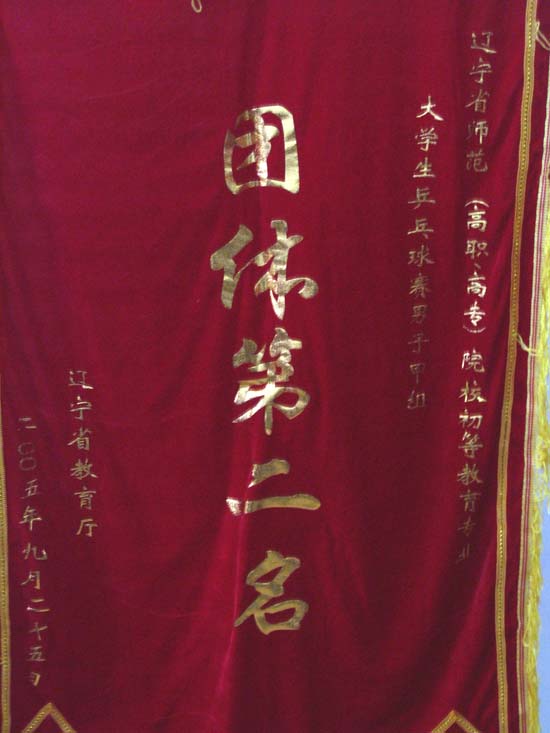 辽宁省师范（高职、高专）院校初等教育专业
大学生乒乓球赛男子甲组
团体第二名
辽宁省教育厅
二00五年九月二十五日